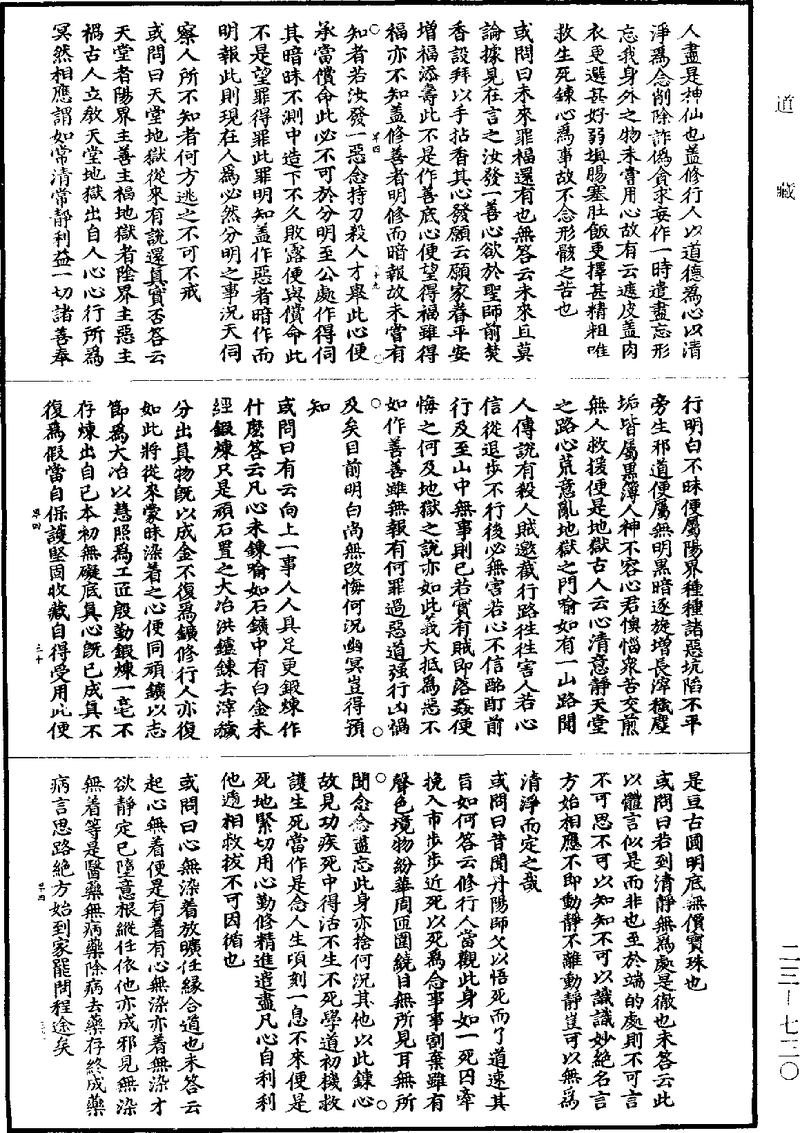 道藏
人盡是神仙也蓋修行人以道德爲心以清
淨爲念削除詐僞貪求妄作一時遣盡忘形
忘我身外之物未嘗用心故有云遮皮蓋肉
衣更選甚好弱填腸塞肚飯更擇甚精粗唯
救生死鍊心爲事故不念形骸之苦也
或問曰未來罪福還有也無答云未來且莫
論據見在言之汝發一善心欲於聖師前焚
香設拜以手拈香其心發願云願家眷平安
增福添壽此不是作善底心便望得福雖得
福亦不知蓋修善者明修而暗報故未嘗有
知者若汝發一惡念持刀殺人才舉此心便
承當償命此必不可於分明至公處作得伺
其暗昧不測中造下不久敗露便與償命此
不是望罪得罪此罪明知蓋作惡者暗作而
明報此則現在人爲必然分明之事況天伺
察人所不知者何方逃之不可不戒
或問曰天堂地獄從來有說還真實否答云
天堂者陽界主善主福地獄者陰界主惡主
禍古人立教天堂地獄出自人心心行所爲
冥然相應謂如常清常靜利益一切諸善奉
行明白不昧便屬陽界種種諸惡坑陷不平
旁生邪道便屬無明黑暗逐旋增長滓穢塵
垢皆屬黑簿人神不容心君懊惱衆苦交煎
無人救援便是地獄古人云心清意靜天堂
之路心荒意亂地獄之門喻如有一山路聞
人傳說有殺人賊邀截行路往往害人若心
信從退步不行後必無害若心不信酩酊前
行及至山中無事則已若實有賊即落姦便
悔之何及地獄之說亦如此義大抵爲惡不
如作善善雖無報有何罪過惡道强行凶禍
及矣目前明白尚無改悔何況幽冥豈得預
知
或問曰有云向上一事人人具足更鍛煉作
什麼答云凡心未鍊喻如石鑛中有白金未
經鍛煉只是頑石置之大冶洪鑪鍊去滓穢
分出真物旣以成金不復爲鑛修行人亦復
如此將從來蒙昧染着之心便同頑鑛以志
節爲大冶以慧照爲工匠殷勤鍛煉一毫不
存煉出自己本初無礙底真心旣已成真不
復爲假當自保護堅固收藏自得受用此便
是亘古圓明底無價寶珠也
或問曰若到清靜無爲處是徹也未答云此
以體言似是而非也至於端的處則不可言
不可思不可以知知不可以識識妙絕名言
方始相應不即動靜不離動靜豈可以無爲
清淨而定之哉
或問曰昔聞丹陽師父以悟死而了道速其
旨如何答云修行人當觀此身如一死囚牽
挽入市步步近死以死爲念事事割棄雖有
聲色境物紛華周匝圍繞目無所見耳無所
聞念念盡忘此身亦捨何況其他以此鍊心
故見功疾死中得活不生不死學道初機救
護生死當作是念人生頃刻一息不來便是
死地緊切用心勤修精進遣盡凡心自利利
他遞相救拔不可因循也
或問曰心無染着放曠任緣合道也未答云
起心無着便是有着有心無染亦着無染才
欲靜定已墮意根縱任依他亦成邪見無染
無着等是醫藥無病藥除病去藥存終成藥
病言思路絕方始到家罷問程途矣
二三—七三〇